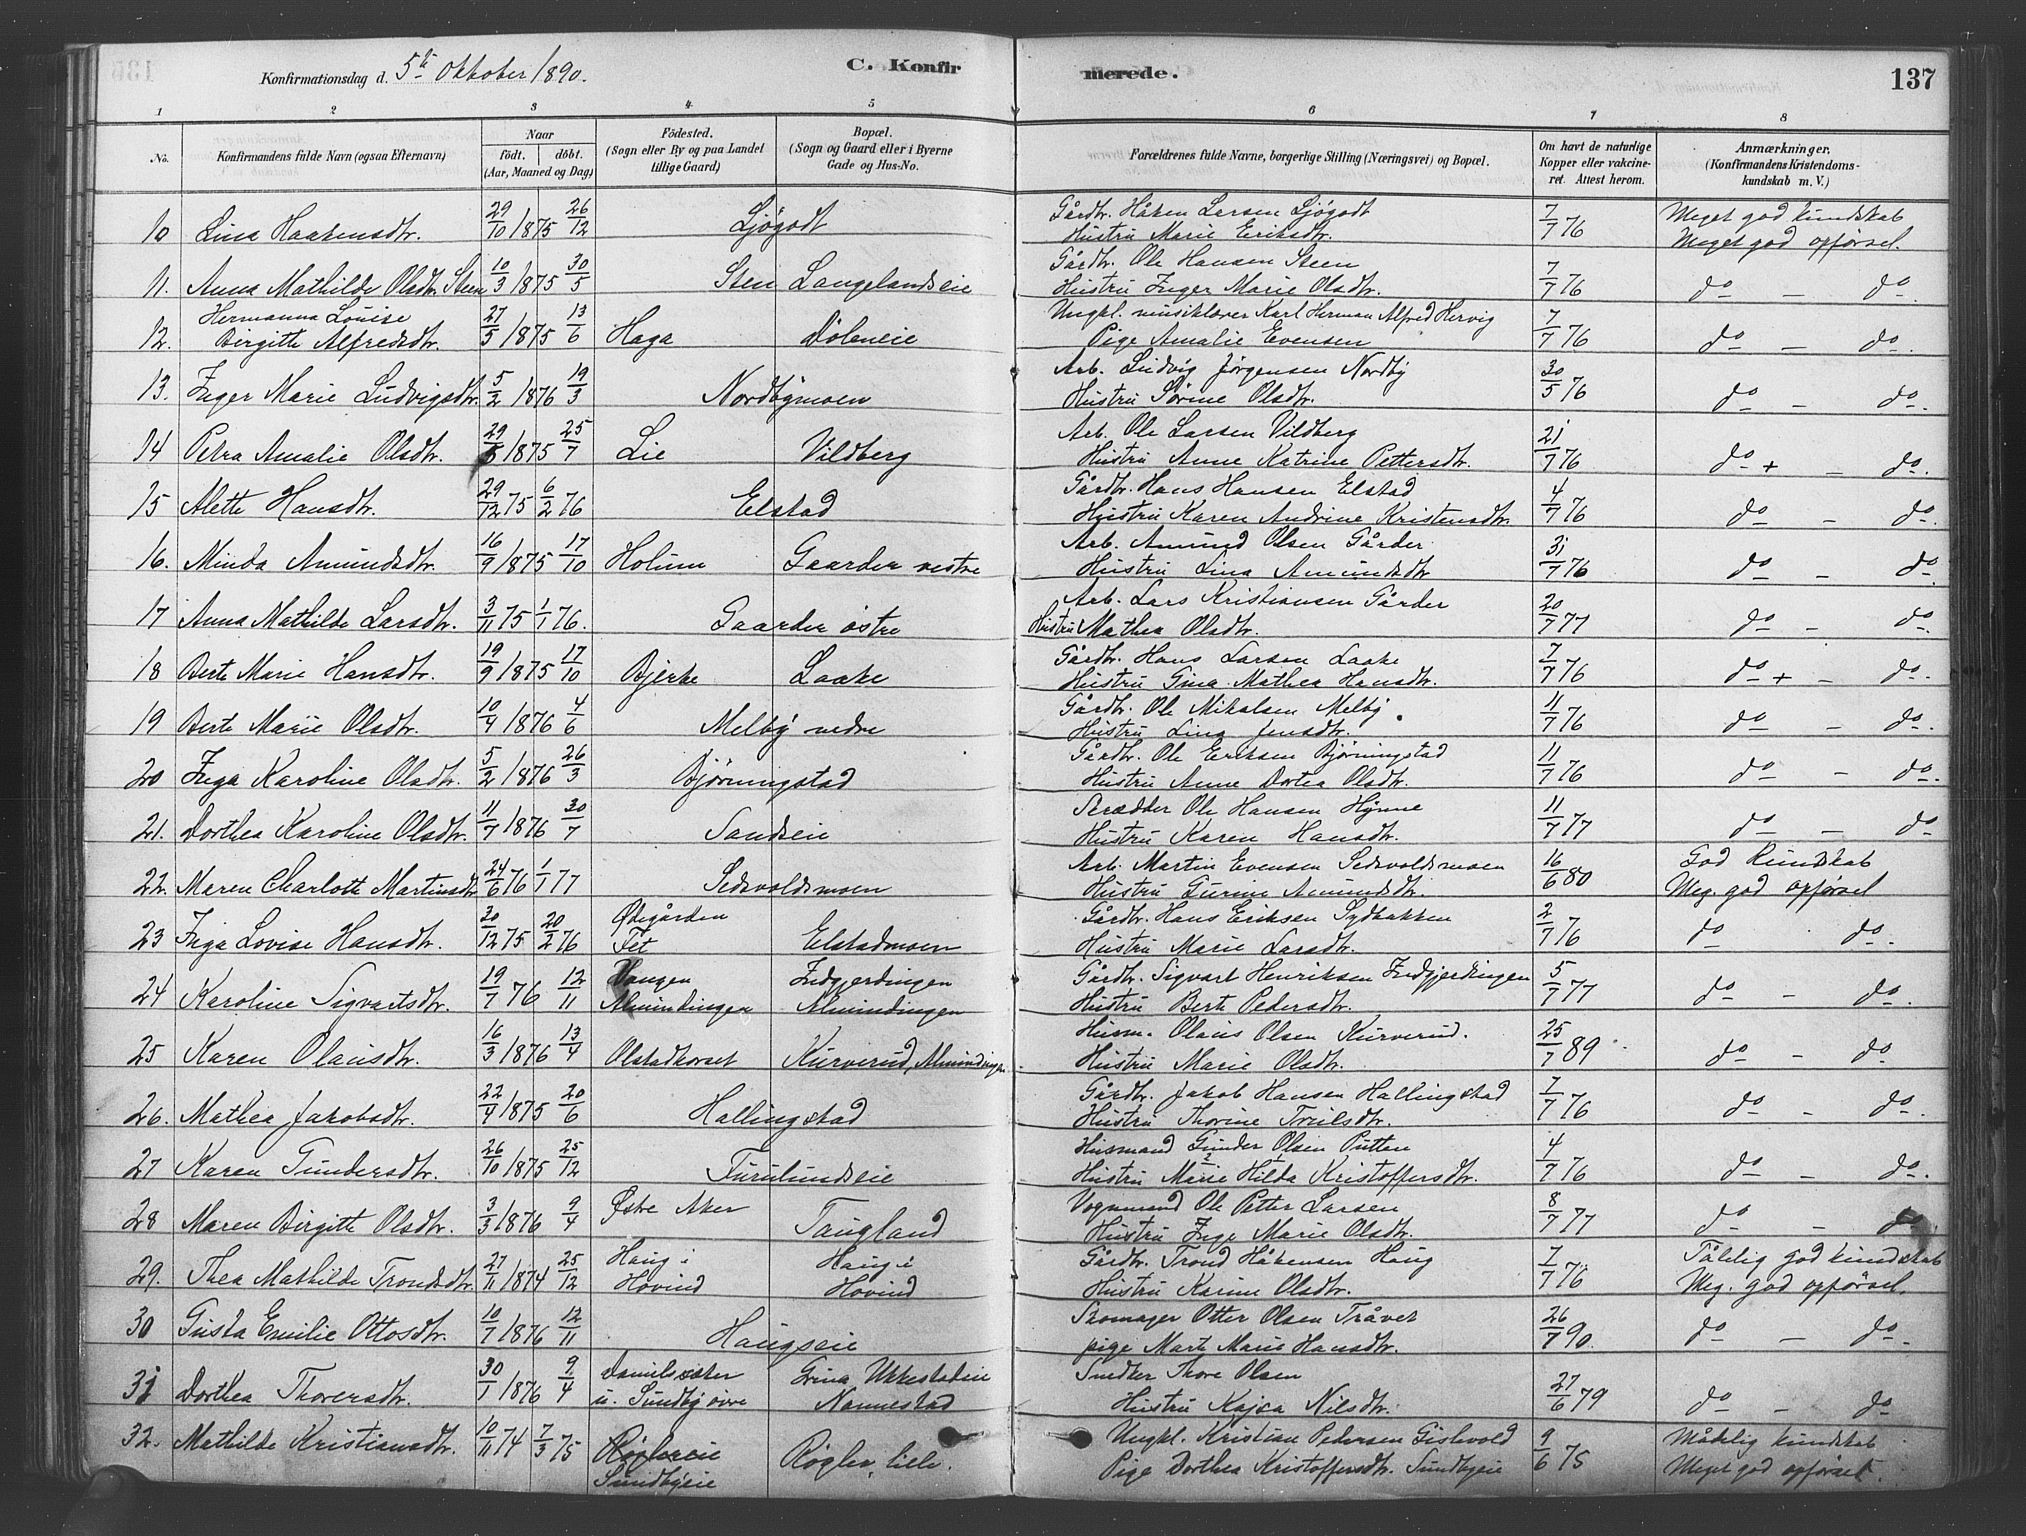 Konfirmationsdag d. 5te Oktober 1890.
C. Konfirmerede.
137
1 2 3 4 5 6 7 8
No.
Konfirmandens fulde Navn (ogsaa Efternavn)
Naar
født. døbt.
(Aar, Maaned og Dag)
Fødested.
(Sogn eller By og paa Landet tillige Gaard)
Bopæl.
(Sogn og Gaard eller i Byerne Gade og Hus-No.
Forældrenes fulde Navne, borgerlige Stilling (Næringsvei) og Bopæl.
Om havt de naturlige Kopper eller vakcineret. Attest herom.
Anmærkninger,
(Konfirmandens Kristendomskundskab m. V.)
10 Lina Haakensdtr. 29/10 1875 26/12 Ljøgodt Gårdbr. Håken Larsen Ljøgodt 7/7 76 Meget god kundskab
Hustru Marie Eriksdtr. Meget god opførsel.
11. Anna Mathilde Olsdtr. Steen 10/3 1875 30/5 Sten Langelandseie Gårdbr. Ole Hansen Steen 7/7 76 do — do.
Hustru Inger Marie Olsdtr.
12. Hermanna Louise
Birgitte Alfredsdtr. 27/5 1875 13/6 Haga Døleneie Ungkl. musiklærer Karl Herman Alfred Hervig 7/7 76 do — do.
Pige Amalie Evensen
13. Inger Marie Ludvigsdtr. 5/2 1876 19/3 Nordbymoen Arb. Ludvig Jørgensen Nordby 30/5 76 do — do.
Hustru Sørine Olsdtr.
14 Petra Amalie Olsdtr. 29/5 1875 25/7 Lie Vildberg Arb. Ole Larsen Vildberg 21/7 76 do + — do.
Hustru Anne Katrine Pettersdtr.
15 Alette Hansdtr. 29/12 75 6/2 76 Elstad Gårdbr. Hans Hansen Elstad 4/7 76 do — do.
Hustru Karen Andrine Kristensdtr.
16. Minda Amundsdtr. 16/9 1875 17/10 Holum Gaarder vestre Arb. Amund Olsen Gårder 31/7 76 do — do.
Hustru Lina Amundsdtr
17 Anna Mathilde Larsdtr. 3/11 75 1/1 76. Gaarder østre Arb. Lars Kristiansen Gårder 20/7 77 do — do.
Hustru Mathea Olsdtr.
18 Berte Marie Hansdtr. 19/9 1875 17/10 Bjerke Laake Gårdbr. Hans Larsen Laake 7/7 76 do + — do.
Hustru Gina Mathea Hansdtr.
19 Berte Marie Olsdtr. 10/4 1876 4/6 Melby nedre Gårdbr. Ole Nikolsen Melby 11/7 76 do — do.
Hustru Lina Jensdtr.
20 Inga Karoline Olsdtr. 5/2 1876 26/3 Bjørningstad Gårdbr. Ole Eriksen Bjørningstad 11/7 76 do — do.
Hustru Anne Dortea Olsdtr.
21. Dorthea Karoline Olsdtr. 11/7 1876 30/7 Sandseie Skrædder Ole Hansen Hynne 11/7 77 do — do
Hustru Karen Hansdtr.
22. Maren Charlotte Martinsdtr 24/6 76 1/1 77 Sedsvoldsmoen Arb. Martin Evensen Sedsvoldsmoen 16/6 80 God kundskab
Hustru Gurine Amundsdtr. Meg. god opførsel
23 Inga Lovise Hansdtr. 30/12 75 20/2 76 Ødegården
Fet Elstadmoen Gårdbr. Hans Eriksen Sydbakken 2/7 76 do do.
Hustru Marie Larsdtr.
24 Karoline Sigvartsdtr. 19/7 76 12/11 Vangen
Almindingen Indgjerdingen
Almindingen Gårdbr. Sigvart Henriksen Indgjerdingen 5/7 77 do — do.
Hustru Berte Pedersdtr.
25 Karen Olausdtr. 16/3 1876 13/4 Olstadkorset Kurverud, Almindingen Husm. Olaus Olsen Kurverud. 25/7 89 do — do
Hustru Marie Olsdtr.
26. Mathea Jakobsdtr. 22/4 1875 20/6 Hallingstad Gårdbr. Jakob Hansen Hallingstad 7/7 76 do — do.
Hustru Thorine Truilsdtr.
27 Karen Gundersdtr. 26/10 1875 25/12 Furulundseie Husmand Gunder Olsen Putten 4/7 76 do — do.
Hustru Marie Hilda Kristoffersdtr.
28 Maren Birgitte Olsdtr. 3/3 1876 9/4 Østre Aker Taugland Vognmand Ole Petter Larsen 8/7 77 do — do
Hustru Inge Marie Olsdtr.
29. Thea Mathilde Trondsdtr. 27/11 1874 25/12 Haug i
Hovind Haug i
Hovind Gårdbr. Trond Håkensen Haug 7/7 76 Tålelig god kundskab
Hustru Karine Olsdtr. Meg. god opførsel.
30 Gusta Emilie Ottosdtr. 10/7 1876 12/11 Haugseie Skomager Otter Olsen Tråvet 26/7 90 do — do.
pige Marte Marie Hansdtr.
31 Dorthea Thoresdtr. 30/1 1876 9/4 Danielsæter
u. Sundby øvre Grina Ukkestadeie
Nannestad Snedker Thore Olsen 27/6 79 do — do
Hustru Kajsa Nilsdtr.
32. Mathilde Kristiansdtr. 10/11 74 7/3 75 Røglereie
Sundbyeie Røgler, lille. Ungkl. Kristian Pedersen Gislevold 9/6 75 Mådelig kundskab
Pige Dorthea Kristoffersdtr. Sundbyeie Meget god opførsel.